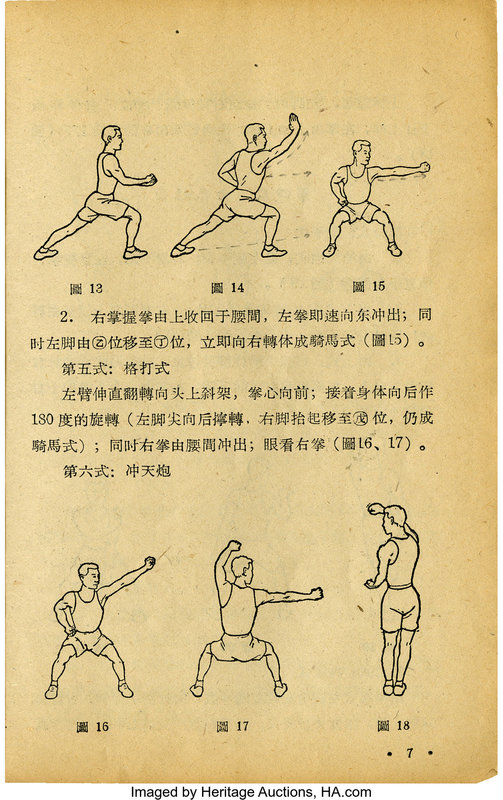 圖 13
圖 14
圖 15
2. 右掌握拳由上收回于腰間，左拳即速向东冲出；同
时左脚由㋥位移至㋣位，立即向右轉体成騎馬式（圖15）。
第五式：格打式
左臂伸直翻轉向头上斜架，拳心向前；接着身体向后作
180 度的旋轉（左脚尖向后擰轉，右脚抬起移至戊位，仍成
騎馬式）；同时右拳由腰間冲出；眼看右拳（圖16、17）。
第六式：冲天炮
圖 16
圖 17
圖 18
• 7 •
Imaged by Heritage Auctions, HA.com